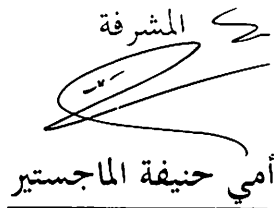 المشرفة
أمي حنيفة الماجستير